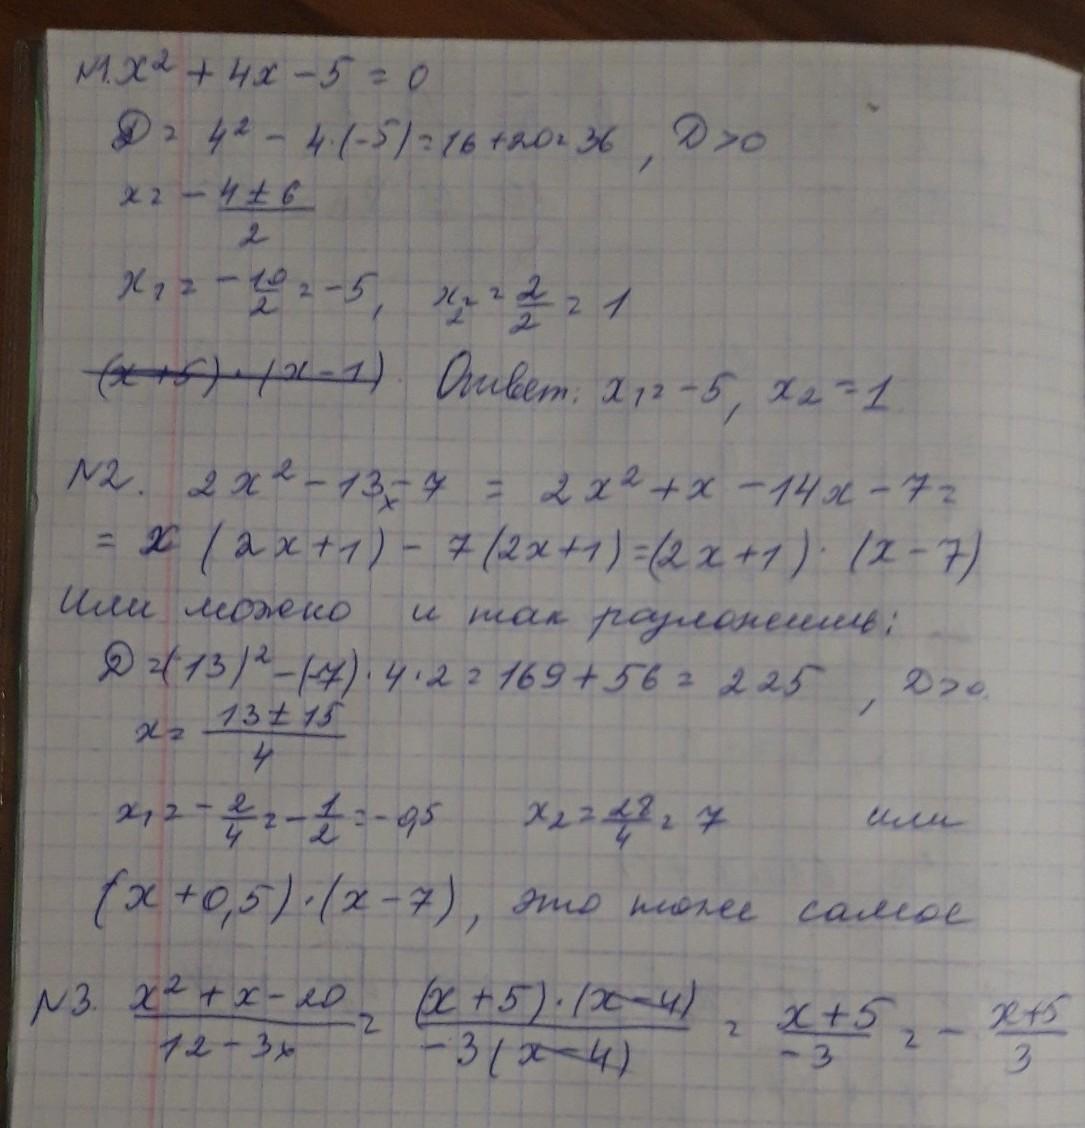 №1. x² + 4x - 5 = 0
D = 4² - 4·(-5) = 16 + 20 = 36, D > 0
x = - 4 ± 6 / 2
x₁ = - 10/2 = -5, x₂ = 2/2 = 1
(x + 5)·(x - 1). Ответ: x₁ = -5, x₂ = 1
№2. 2x² - 13x - 7 = 2x² + x - 14x - 7 =
= x (2x + 1) - 7(2x + 1) = (2x + 1)·(x - 7)
Или можно и так разложить:
D = (13)² - (-7)·4·2 = 169 + 56 = 225, D > 0.
x = 13 ± 15 / 4
x₁ = - 2/4 = - 1/2 = -0,5 x₂ = 28/4 = 7 или
(x + 0,5)·(x - 7), это тоже самое
№3. x² + x - 20 / 12 - 3x = (x + 5)·(x - 4) / -3(x - 4) = x + 5 / -3 = - x + 5 / 3